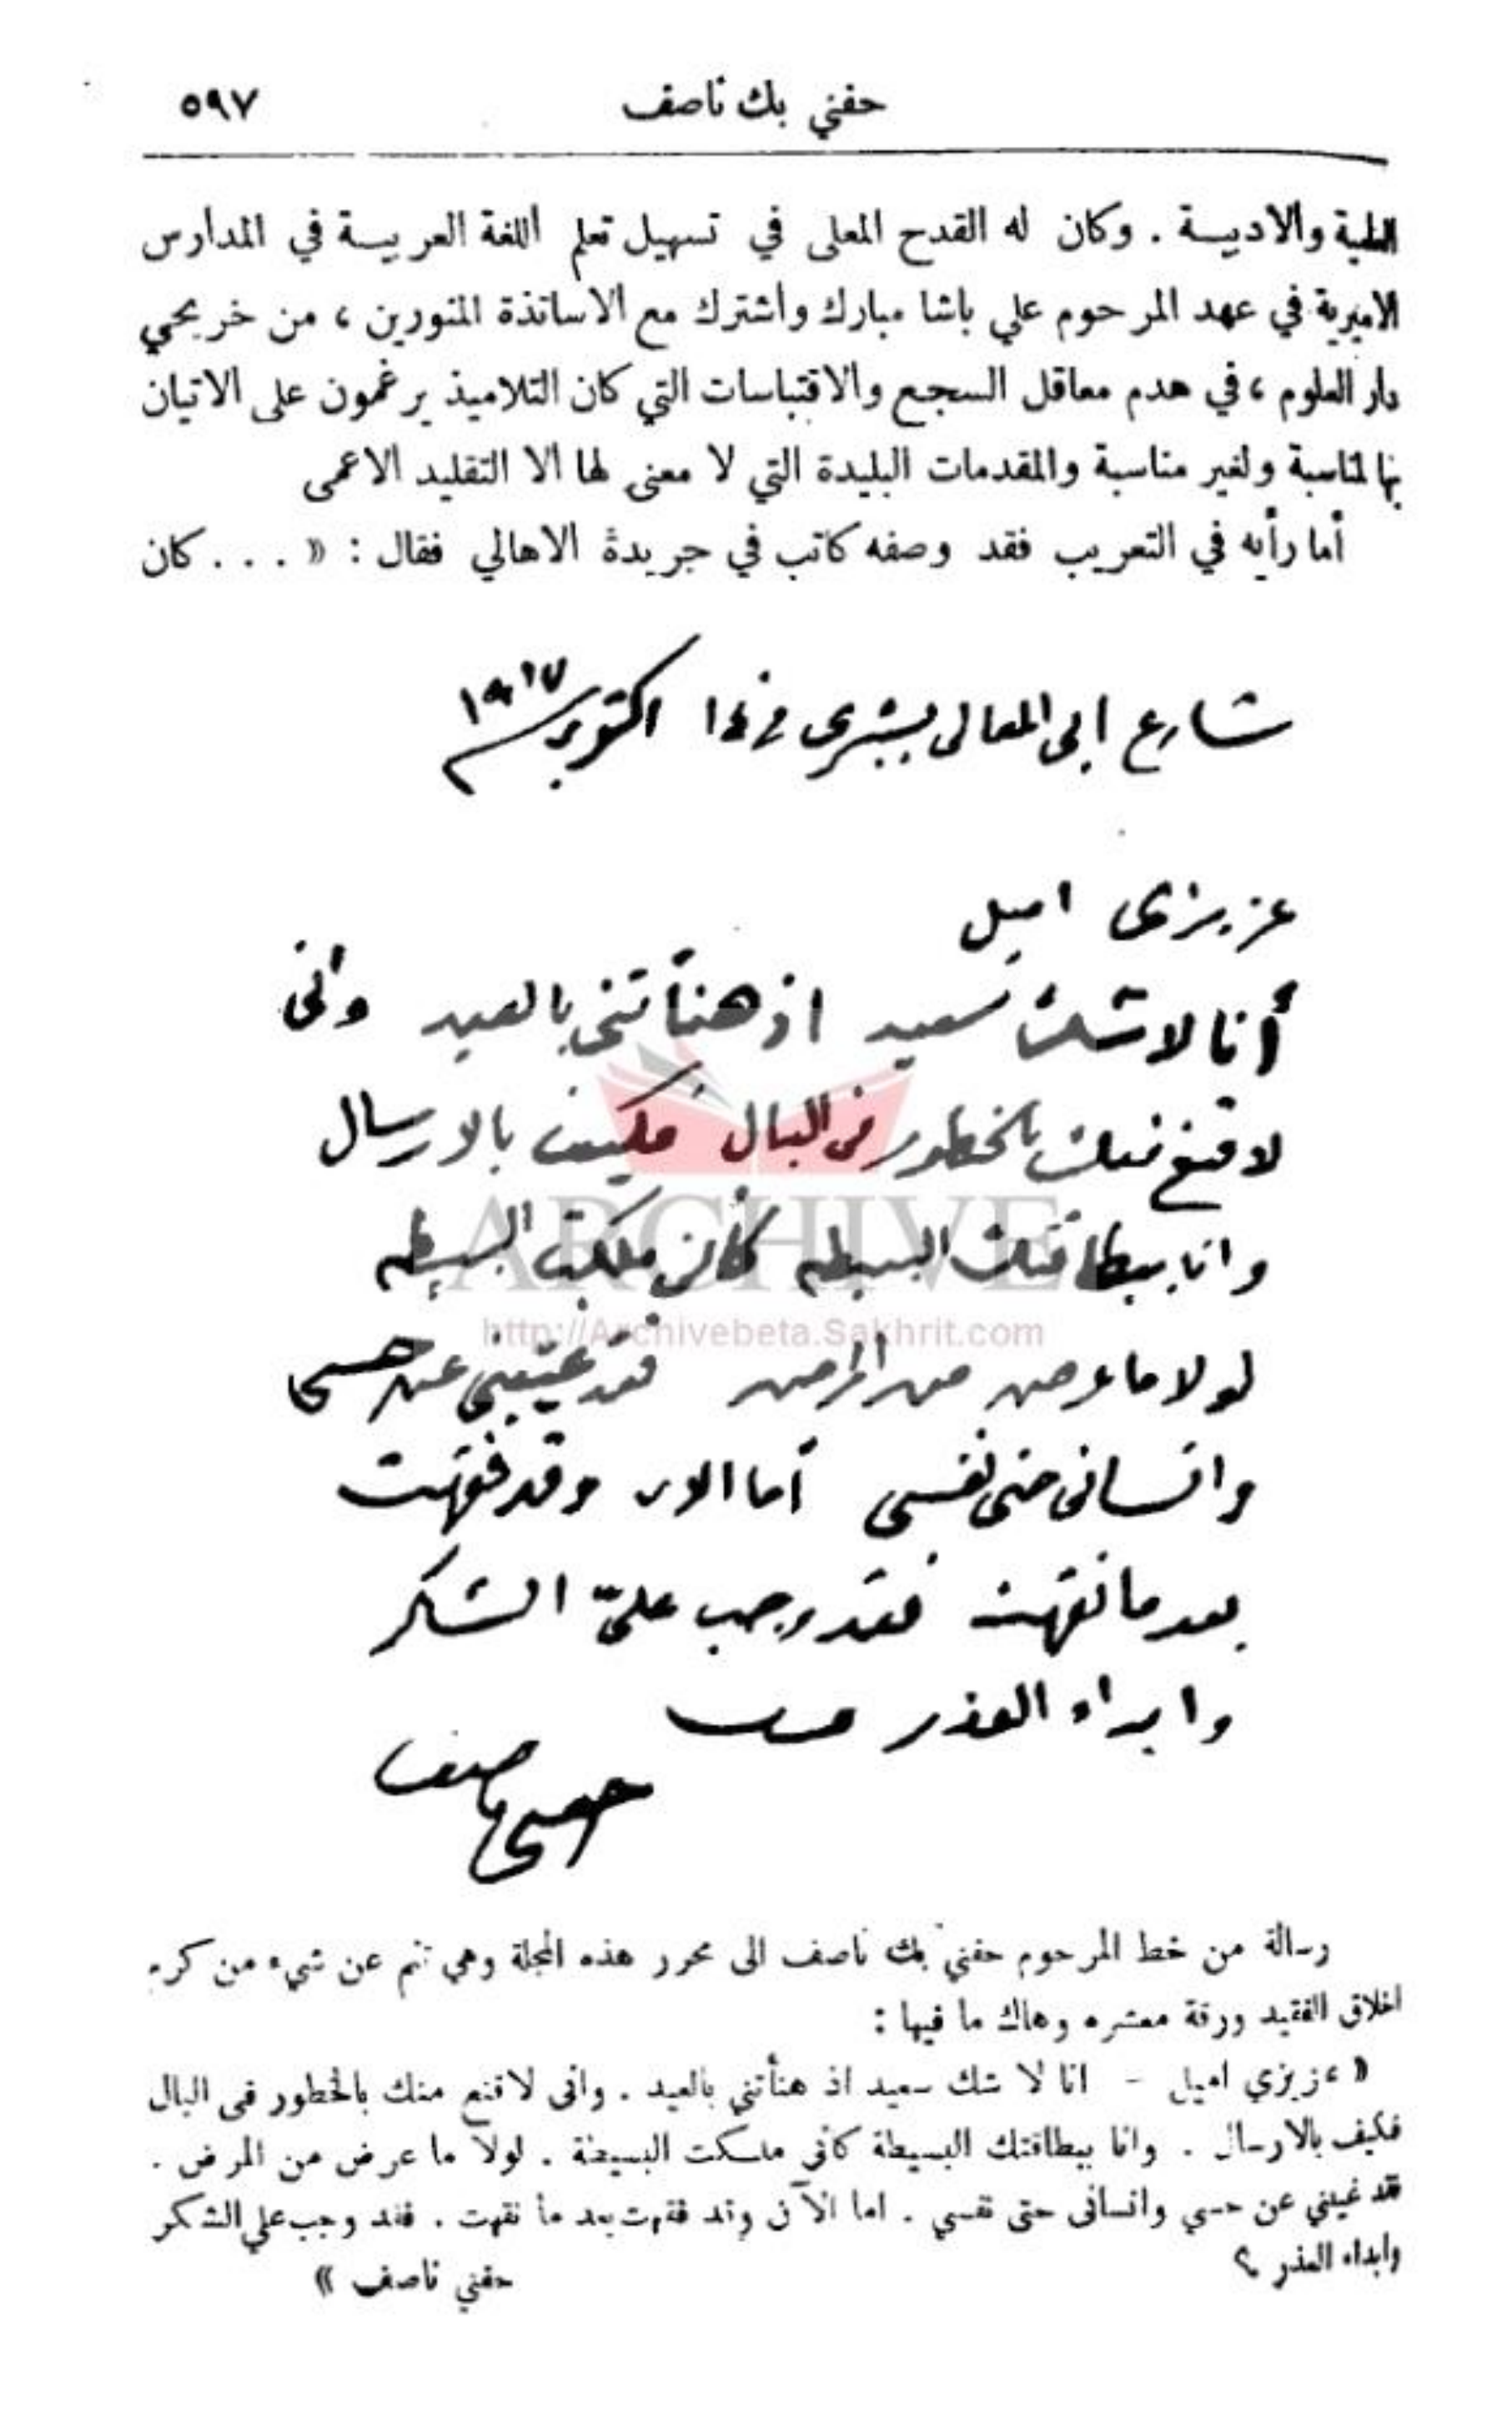 حفني بك ناصف
٥٩٧
العلمية والادبية . وكان له القدح المعلى في تسهيل تعلم اللغة العربية في المدارس
الاميرية في عهد المرحوم علي باشا مبارك واشترك مع الاساتذة المتنورين ، من خريجي
دار العلوم ، في هدم معاقل السجع والاقتباسات التي كان التلاميذ يرغمون على الاتيان
بها لمناسبة ولغير مناسبة والمقدمات البليدة التي لا معنى لها الا التقليد الاعمى
أما رأيه في التعريب فقد وصفه كاتب في جريدة الاهالي فقال : « . . . كان
شارع ابى المعالى بشبرى فى ١٤ اكتوبر ١٩١٧
عزيزى اميل
أنا لا شك سعيد اذ هنأتنى بالعيد وانى
لاقنع منك بالخطور فى البال فكيف بالارسال
وانا ببطاقتك البسيطه كأنى ملكت البسيطه
لولا ما عرض من المرض فقد غيبنى عن حسى
وانسانى حتى نفسى أما الان وقد فقهت
بعد ما نقهت فقد وجب علىّ الشكر
وابداء العذر
حفنى ناصف
رسالة من خط المرحوم حفني بك ناصف الى محرر هذه المجلة وهي تنم عن شيء من كرم
اخلاق الفقيد ورقة معشره وهاك ما فيها :
« عزيزي اميل - انا لا شك سعيد اذ هنأتني بالعيد . وانى لاقنع منك بالخطور فى البال
فكيف بالارسال . وانا ببطاقتك البسيطة كأنى ملكت البسيطة . لولا ما عرض من المرض .
قد غيبني عن حسي وانسانى حتى نفسي . اما الآن وقد فقهت بعد ما نقهت . فقد وجب علي الشكر
وابداء العذر ؟
حفني ناصف »
ARCHIVE
http://Archivebeta.Sakhrit.com